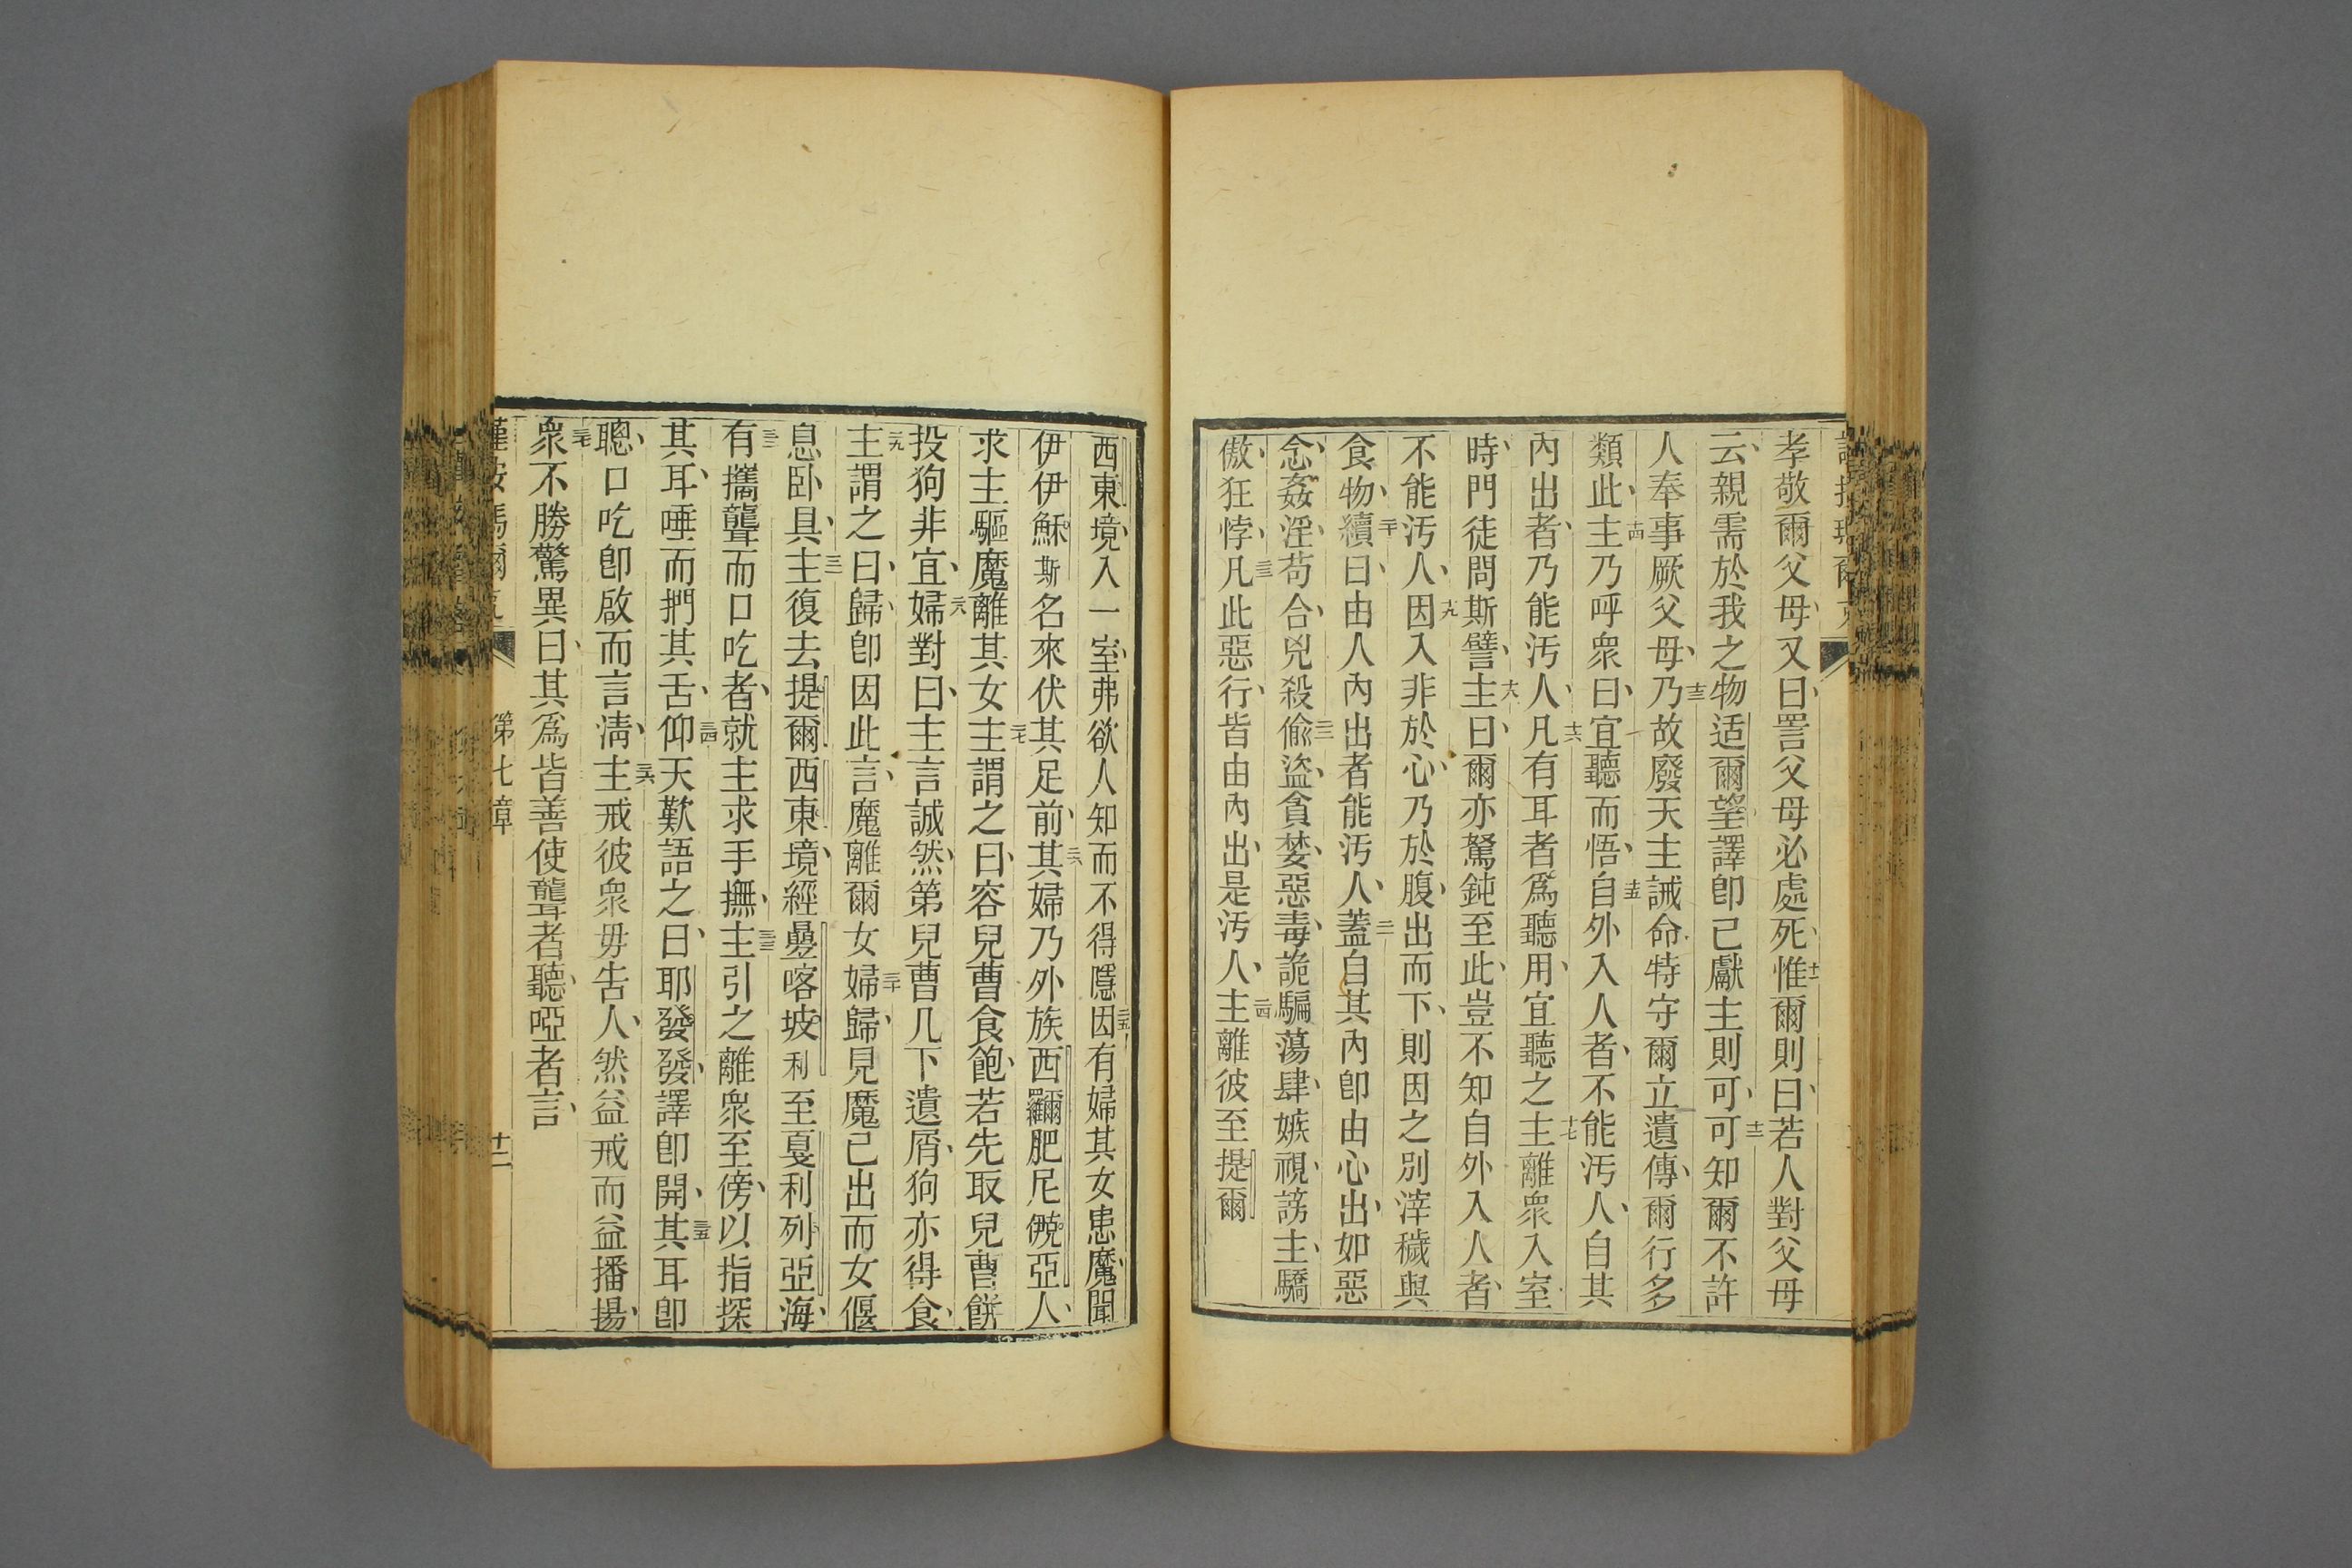 孝敬爾父母又曰詈父母必處死十一惟爾則曰若人對父母
云親需於我之物适爾望譯卽己獻主則可十二可知爾不許
人奉事厥父母十三乃故廢天主誡命特守爾立遺傳爾行多
類此十四主乃呼衆曰宜聽而悟十五自外入人者不能汚人自其
內出者乃能汚人十六凡有耳者爲聽用宜聽之十七主離衆入室
時門徒問斯譬十八主曰爾亦駑鈍至此豈不知自外入人者
不能汚人十九因入非於心乃於腹出而下則因之別滓穢與
食物二十續曰由人內出者能汚人二一蓋自其內卽由心出如惡
念姦淫苟合兇殺二二偸盜貪婪惡毒詭騙蕩肆嫉視謗主驕
傲狂悖二三凡此惡行皆由內出是汚人二四主離彼至提爾
西東境入一室弗欲人知而不得隱二五因有婦其女患魔聞
伊伊穌斯名來伏其足前二六其婦乃外族西爾肥尼亞人
求主驅魔離其女二七主謂之曰容兒曹食飽若先取兒曹餅
投狗非宜二八婦對曰主言誠然第兒曹几下遺屑狗亦得食
二九主謂之曰歸卽因此言魔離爾女三十婦歸見魔已出而女偃
息臥具三一主復去提爾西東境經疊喀坡利至戛利列亞海
三二有攜聾而口吃者就主求手撫三三主引之離衆至傍以指探
其耳唾而捫其舌三四仰天歎語之曰耶發發譯卽開三五其耳卽
聰口吃卽啟而言淸三六主戒彼衆毋吿人然益戒而益播揚
三七衆不勝驚異曰其爲皆善使聾者聽啞者言
第七章
十二